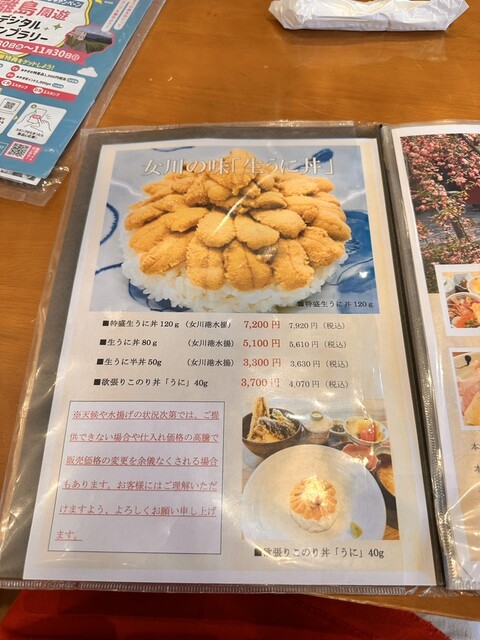 島周遊
デジタル
ンプラリー
11月30日
女川の味「生うに丼」
■特盛生うに丼120g
■特盛生うに丼 120g (女川港水揚) 7,200円 7,920円(税込)
■生うに丼 80g (女川港水揚) 5,100円 5,610円(税込)
■生うに半丼 50g (女川港水揚) 3,300円 3,630円(税込)
■欲張りこのり丼「うに」40g 3,700円 4,070円(税込)
※天候や水揚げの状況次第では、ご提
供できない場合や仕入れ価格の高騰で
販売価格の変更を余儀なくされる場合
もあります。お客様にはご理解いただ
けますよう、よろしくお願い申し上げ
ます。
■欲張りこのり丼「うに」40g
本
本